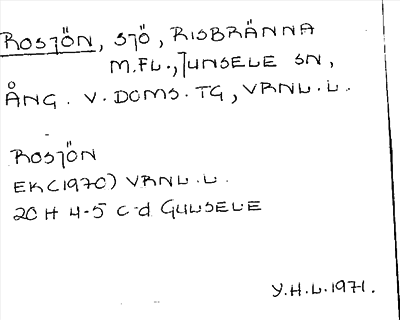 ROSJÖN, SJÖ, RISBRÄNNA
M.FL., JUNSELE SN,
ÅNG. V. DOMS. TG, VRNL.L.
ROSJÖN
EK(1970) VRNL.L.
20H 4-5 c-d GULSELE
Y.H.L.1971.